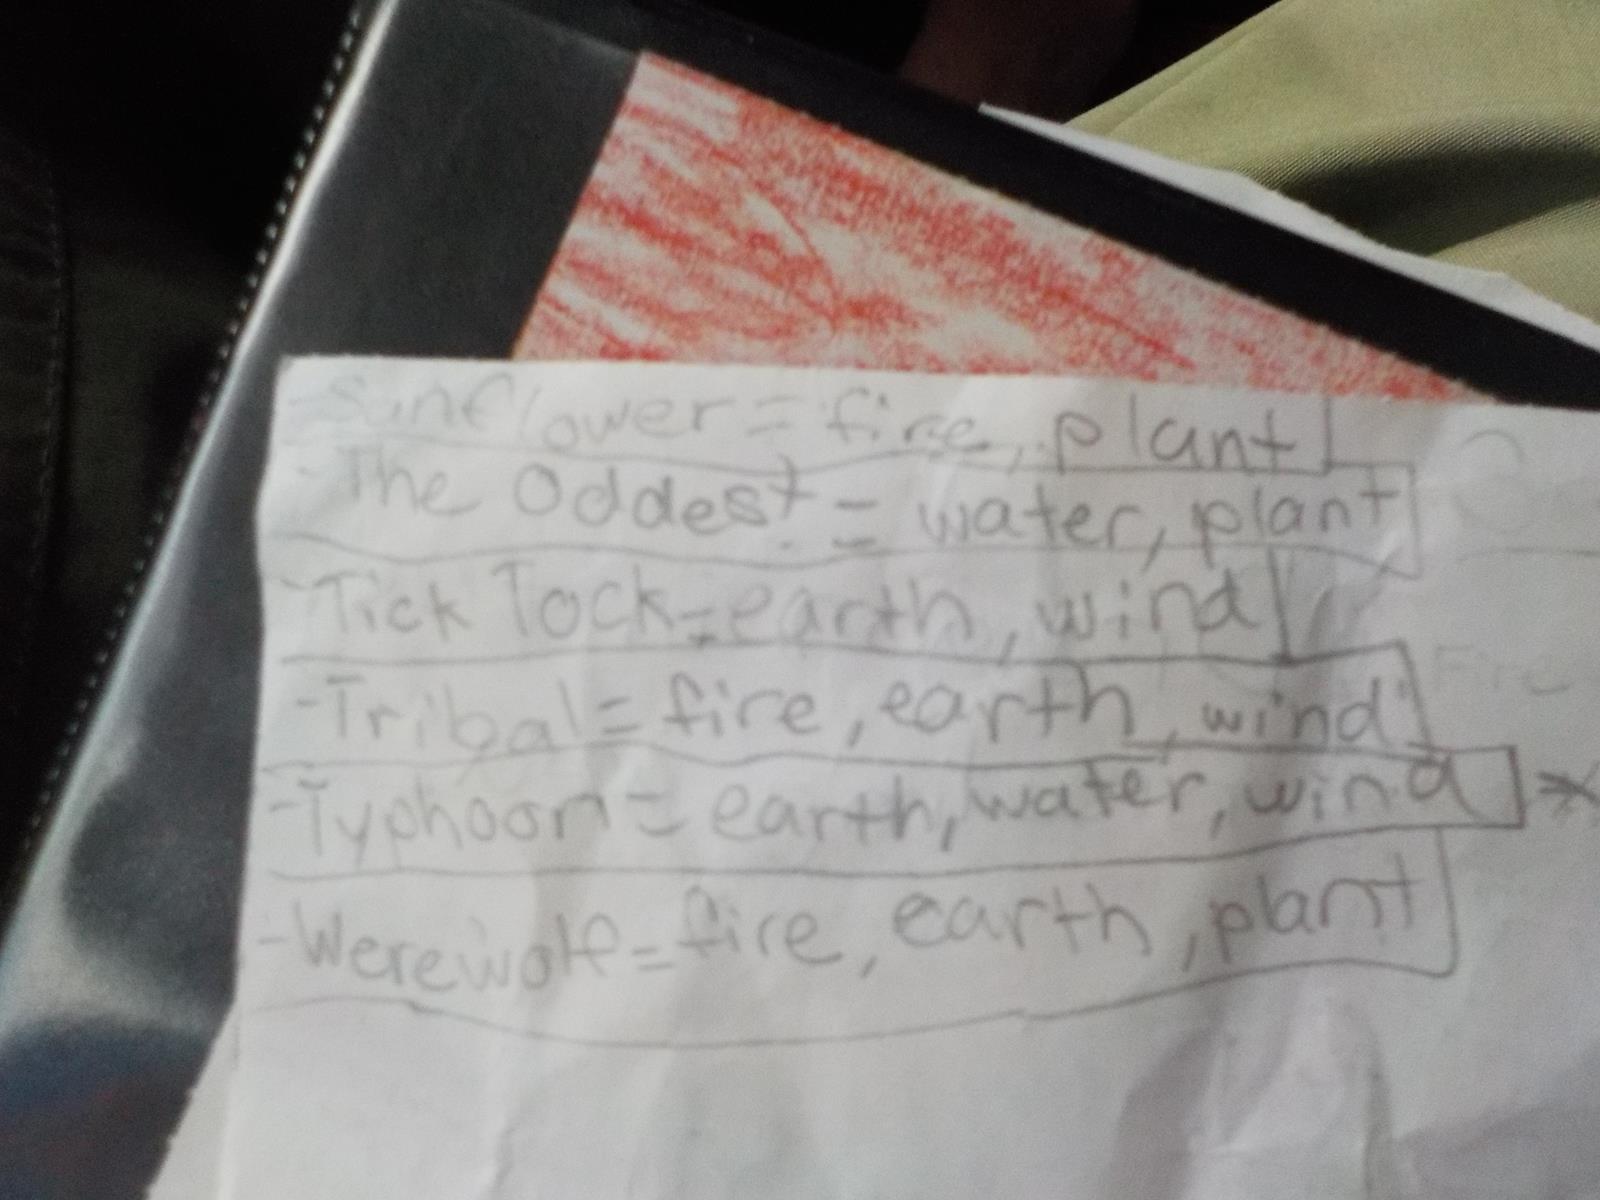 -Sunflower = fire, plant
-The Oddest = water, plant
-Tick Tock = earth, wind
-Tribal = fire, earth, wind
Fire
-Typhoon = earth, water, wind
-Werewolf = fire, earth, plant